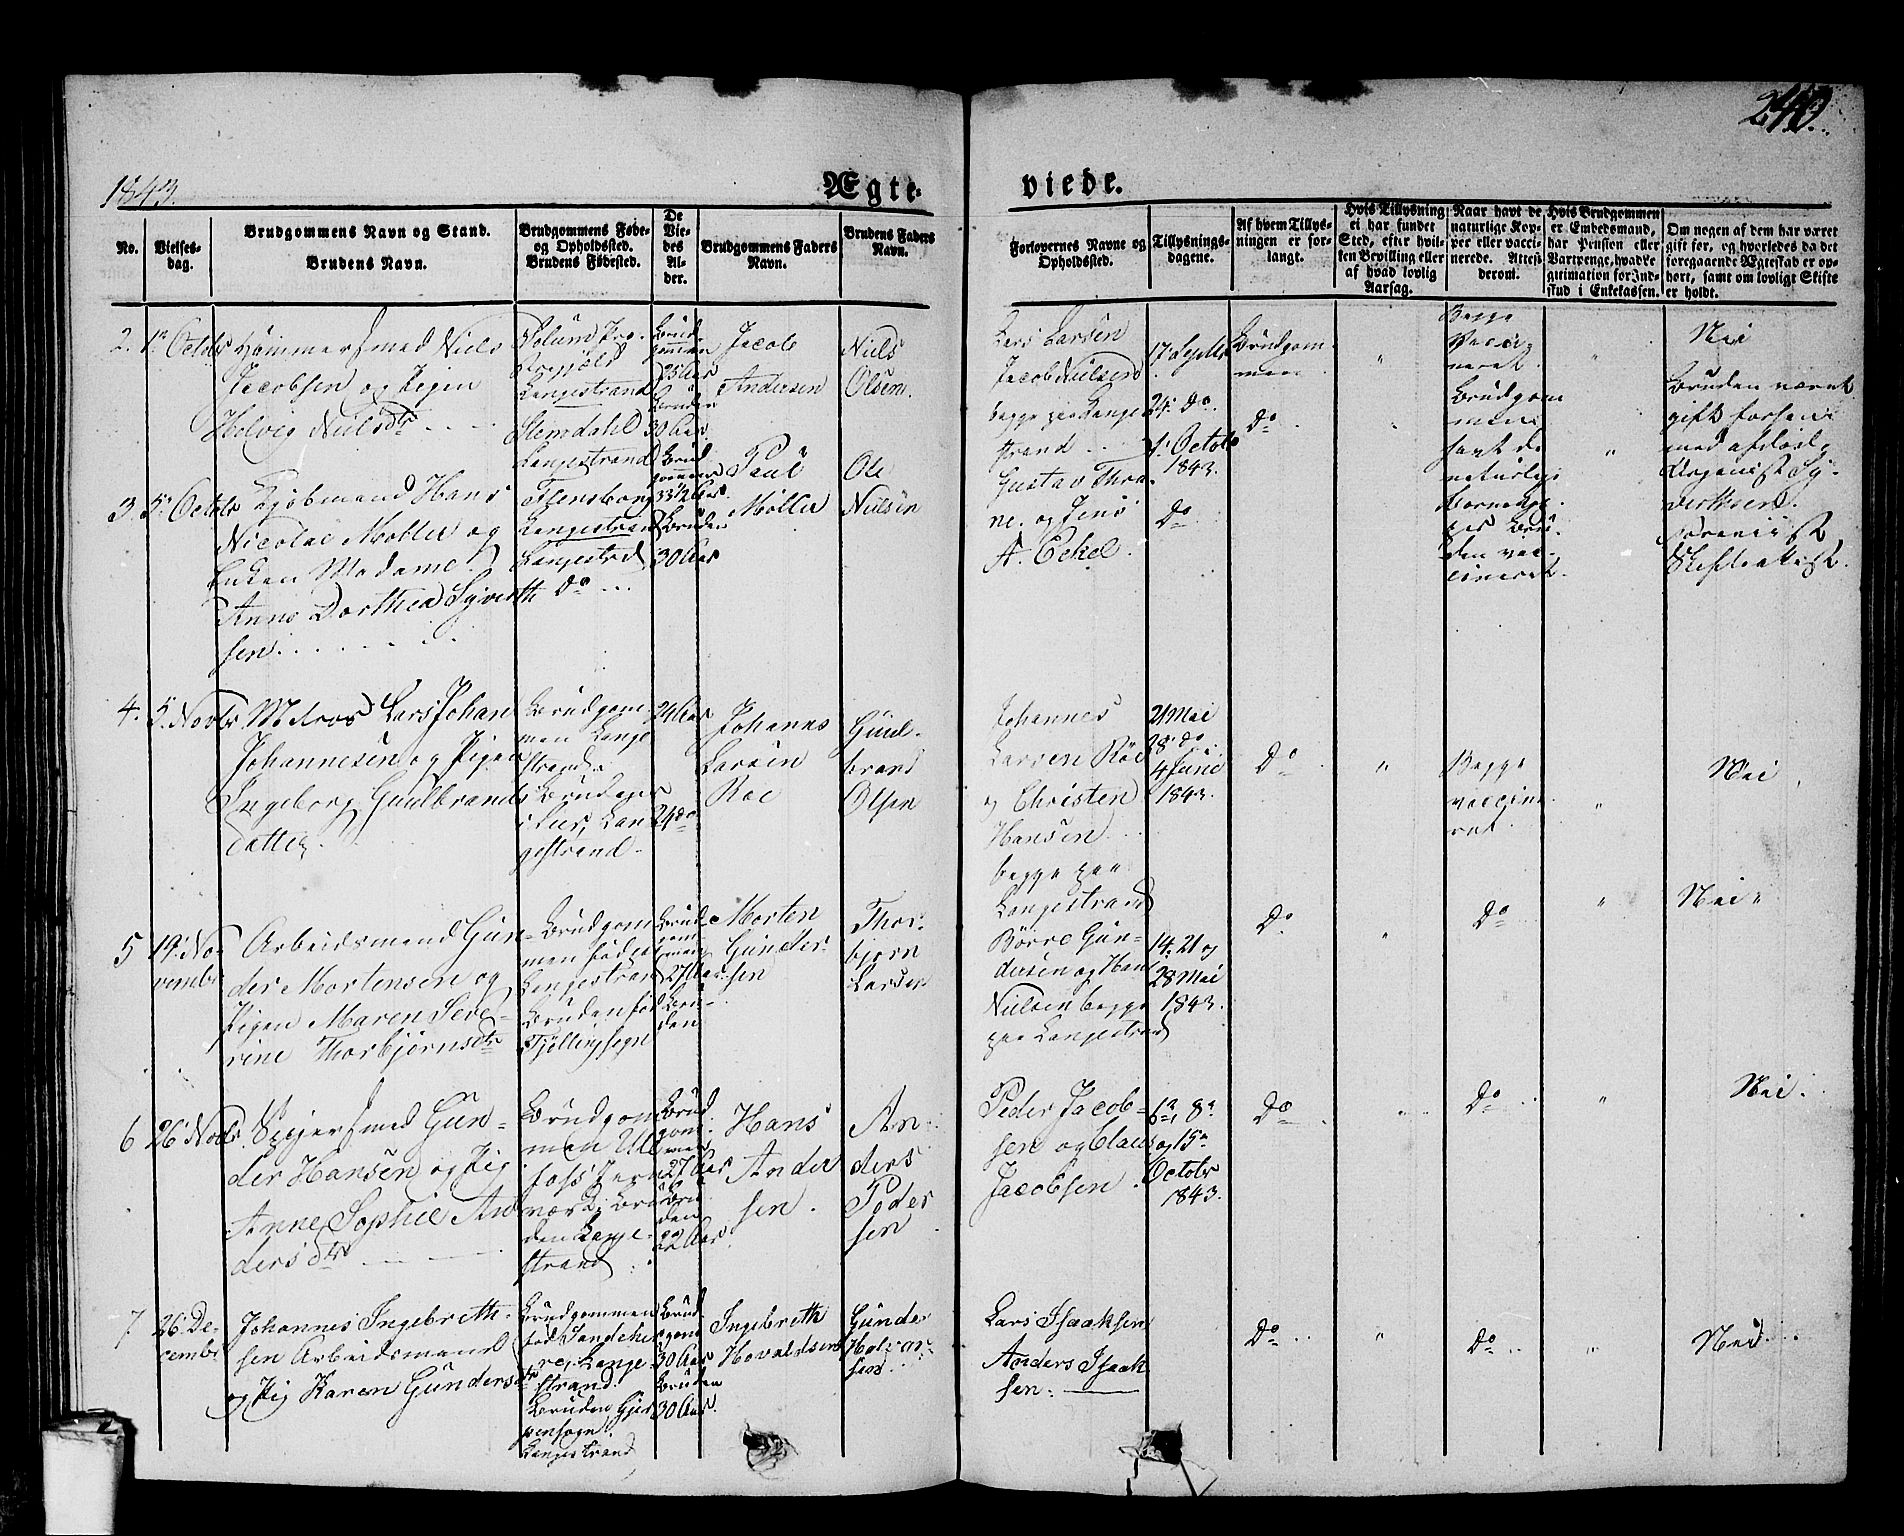 240.
1843.
Ægte-
viede.
No.
Vielses-
dag.
Brudgommens Navn og Stand.
Brudens Navn.
Brudgommens Føde-
og Opholdssted.
Brudens Fødested.
De
Vie-
des
Al-
der.
Brudgommens Faders
Navn.
Brudens Faders
Navn.
Forlovernes Navne og
Opholdssted.
Tillysnings-
dagene.
Af hvem Tillys-
ningen er for-
langt.
Hvis Tillysning
ei har fundet
Sted, efter hvil-
ken Bevilling eller
af hvad lovlig
Aarsag.
Naar havt de
naturlige Kop-
per eller vacci-
nerede. Attest
derom.
Hvis Brudgommen
er Embedsmand,
har Pension eller
Vartpenge, hvad Le-
gitimation for Ind-
skud i Enkekassen.
Om nogen af dem har været
gift før, og hvorledes da det
foregaaende Ægteskab er op-
hørt, samt om lovligt Skifte
er holdt.
2.
1ste Octobr
Hammersmed Niels
Jacobsen og Pigen
Helvig Nielsdtr
Langestrand
Langestrand
Brud-
gommen
25 Aar
Bruden
30 Aar.
Jacob
Andersen
Niels
Olsen.
Lars Larsen
Jacob Nielsen
begge paa Lange-
strand
17 Septbr
24. Do
1. Octobr
1843.
Brudgom-
men
"
Begge
vacci-
neret.
"
Nei
3.
5. Octobr
Kjøbmand Hans
Nicolai Møller og
Enken Madame
Anne Dorthea Syverth-
sen
Flensborg
Langestrand
Langestrd
Do
Brud-
gommen
33 1/2 Aar.
Bruden
30 Aar
Paul
Møller
Ole
Nielsen
Gustav Thra-
ne. og Jens
A. Eckel.
Do
Do
Brudgom
men
havt de
naturlige
Børnekop-
per Bru-
den vac-
cineret.
"
Bruden været
gift forhen
med afdøde
Organist Sy-
vertsen.
Skifteattest.
4.
5. Novbr
Matros Lars Johan
Johannesen og Pigen
Ingeborg Guulbrands
datter
Brudgom-
men Lange
strand
Bruden
Lan
gestrand
24 Aar
24 do
Johannes
Larsen
Røe
Guul-
brand
Olsen
Johannes
Larsen Røe
og Christen
Hansen
begge paa
Langestrand
21 Mai
28. do
4 Juni
1843.
Do
"
Begge
vaccine
ret
"
Nei
5
19. No-
vember
Arbeidsmand Gun-
der Mortensen og
Pigen Maren Seve-
rine Thorbjørnsdtr
Brudgom
men født
Langestrand
Bruden fød
Tjølling Sogn
Brud-
gom-
men
27 Aar
Bru-
den
Morten
Gunder-
sen
Thor-
bjørn
Larsen
Børre Gun-
dersen og Hans
Nielsen begge
paa Langestrand
14. 21 og
28 Mai
1843.
Do
"
Do
"
Nei
6
26 Novbr.
Spigersmed Gun-
der Hansen og Pig
Anne Sophie An
dersdtr
Brudgom-
men Ule-
foss Jern-
værk, Bru-
den Lange-
strand
Brud
gom-
men
27 Aar
Bru-
den
22 Aar
Hans
Ander
sen.
An-
ders
Peder
sen
Peder Jacob-
sen og Claus
Jacobsen
8de
og 15de
Octobr
1843.
Do
"
Do
"
Nei.
7.
26. De-
cembr
Johannes Ingebreth-
sen Arbeidsmand
og Pig Karen Gundersdtr
Brudgommen
født Sandehe-
red, Lange-
strand.
Bruden Gjer-
pensogn
Langestrand
Brud
gom
30 Aar
Bruden
30 Aar.
Ingebreth
Hovaldsen
Gunder
Halvor-
sen
Lars Isaaksen
Anders Isaak
sen.
Do
"
Do
"
Nei